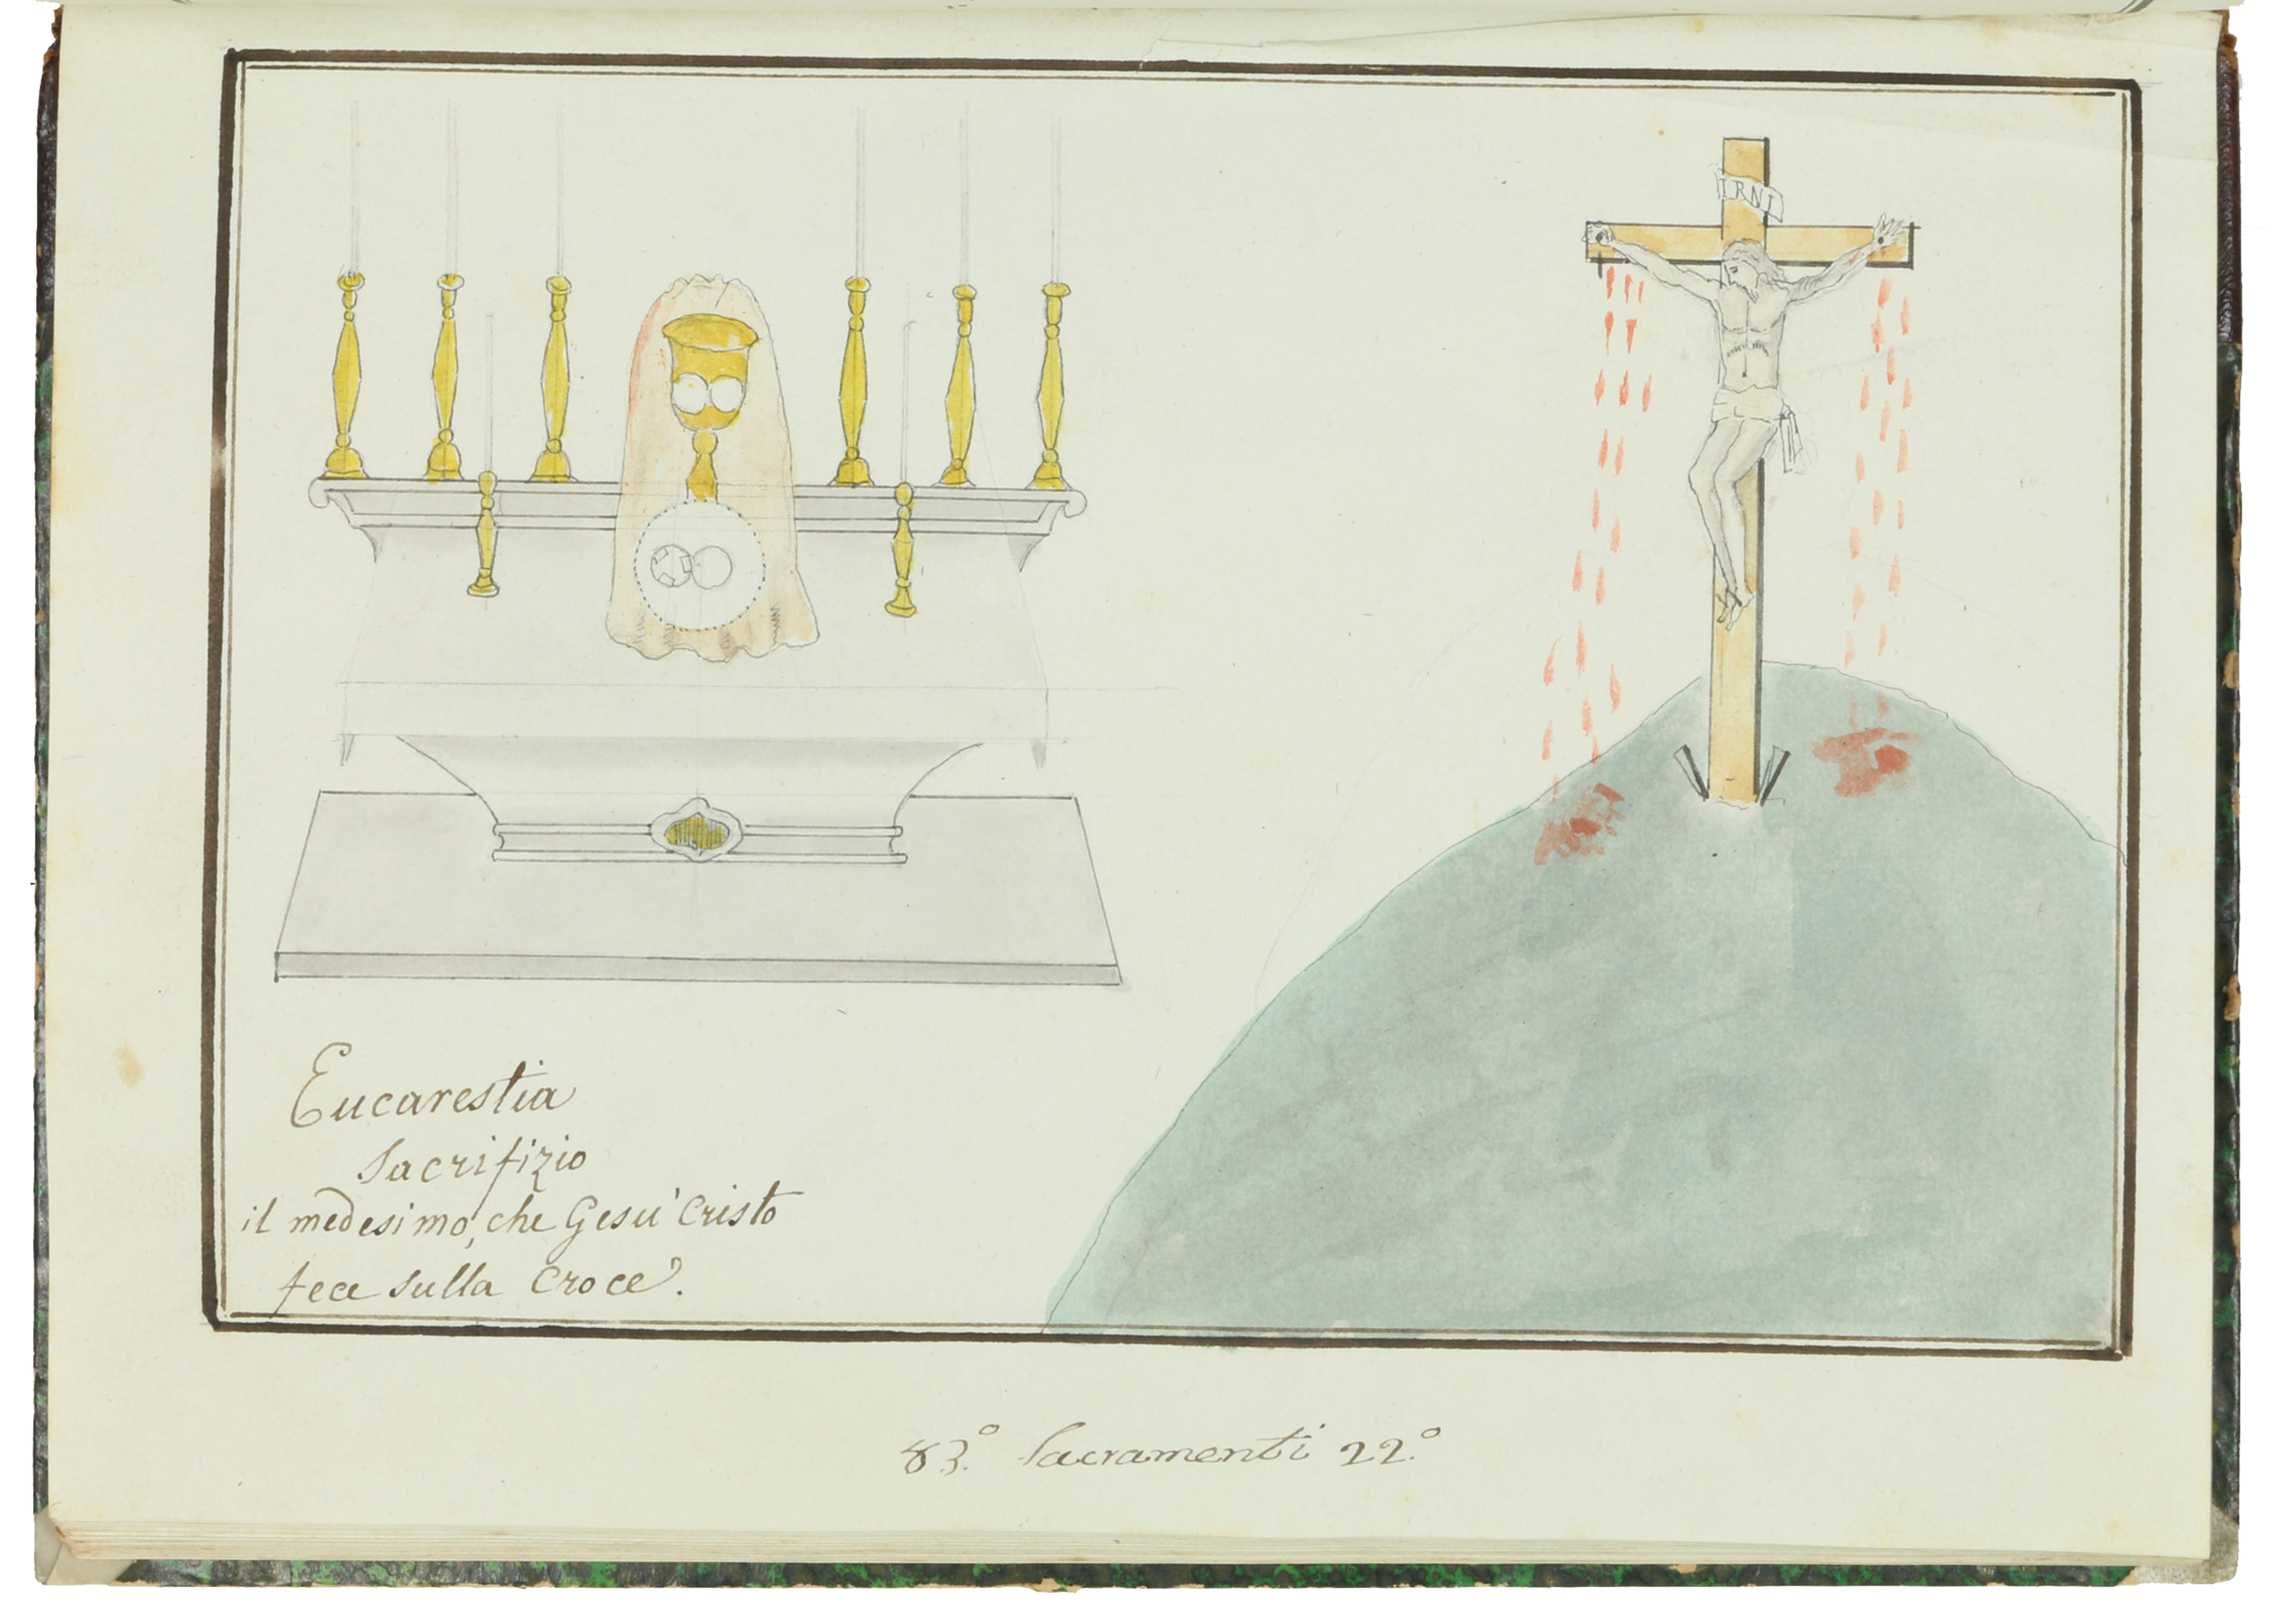 IRNI
Eucarestia
Sacrifizio
il medesimo, che Gesu' Cristo
fece sulla Croce.
83.° Sacramenti 22.°